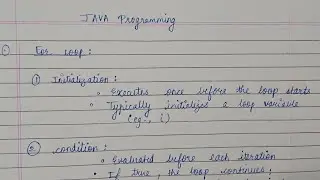 JAVA Programming
for loop :
① Initialization :
• Executes once before the loop starts
• Typically initializes a loop variable
(eg., i)
② condition :
• Evaluated before each iteration
• If true, the loop continues;